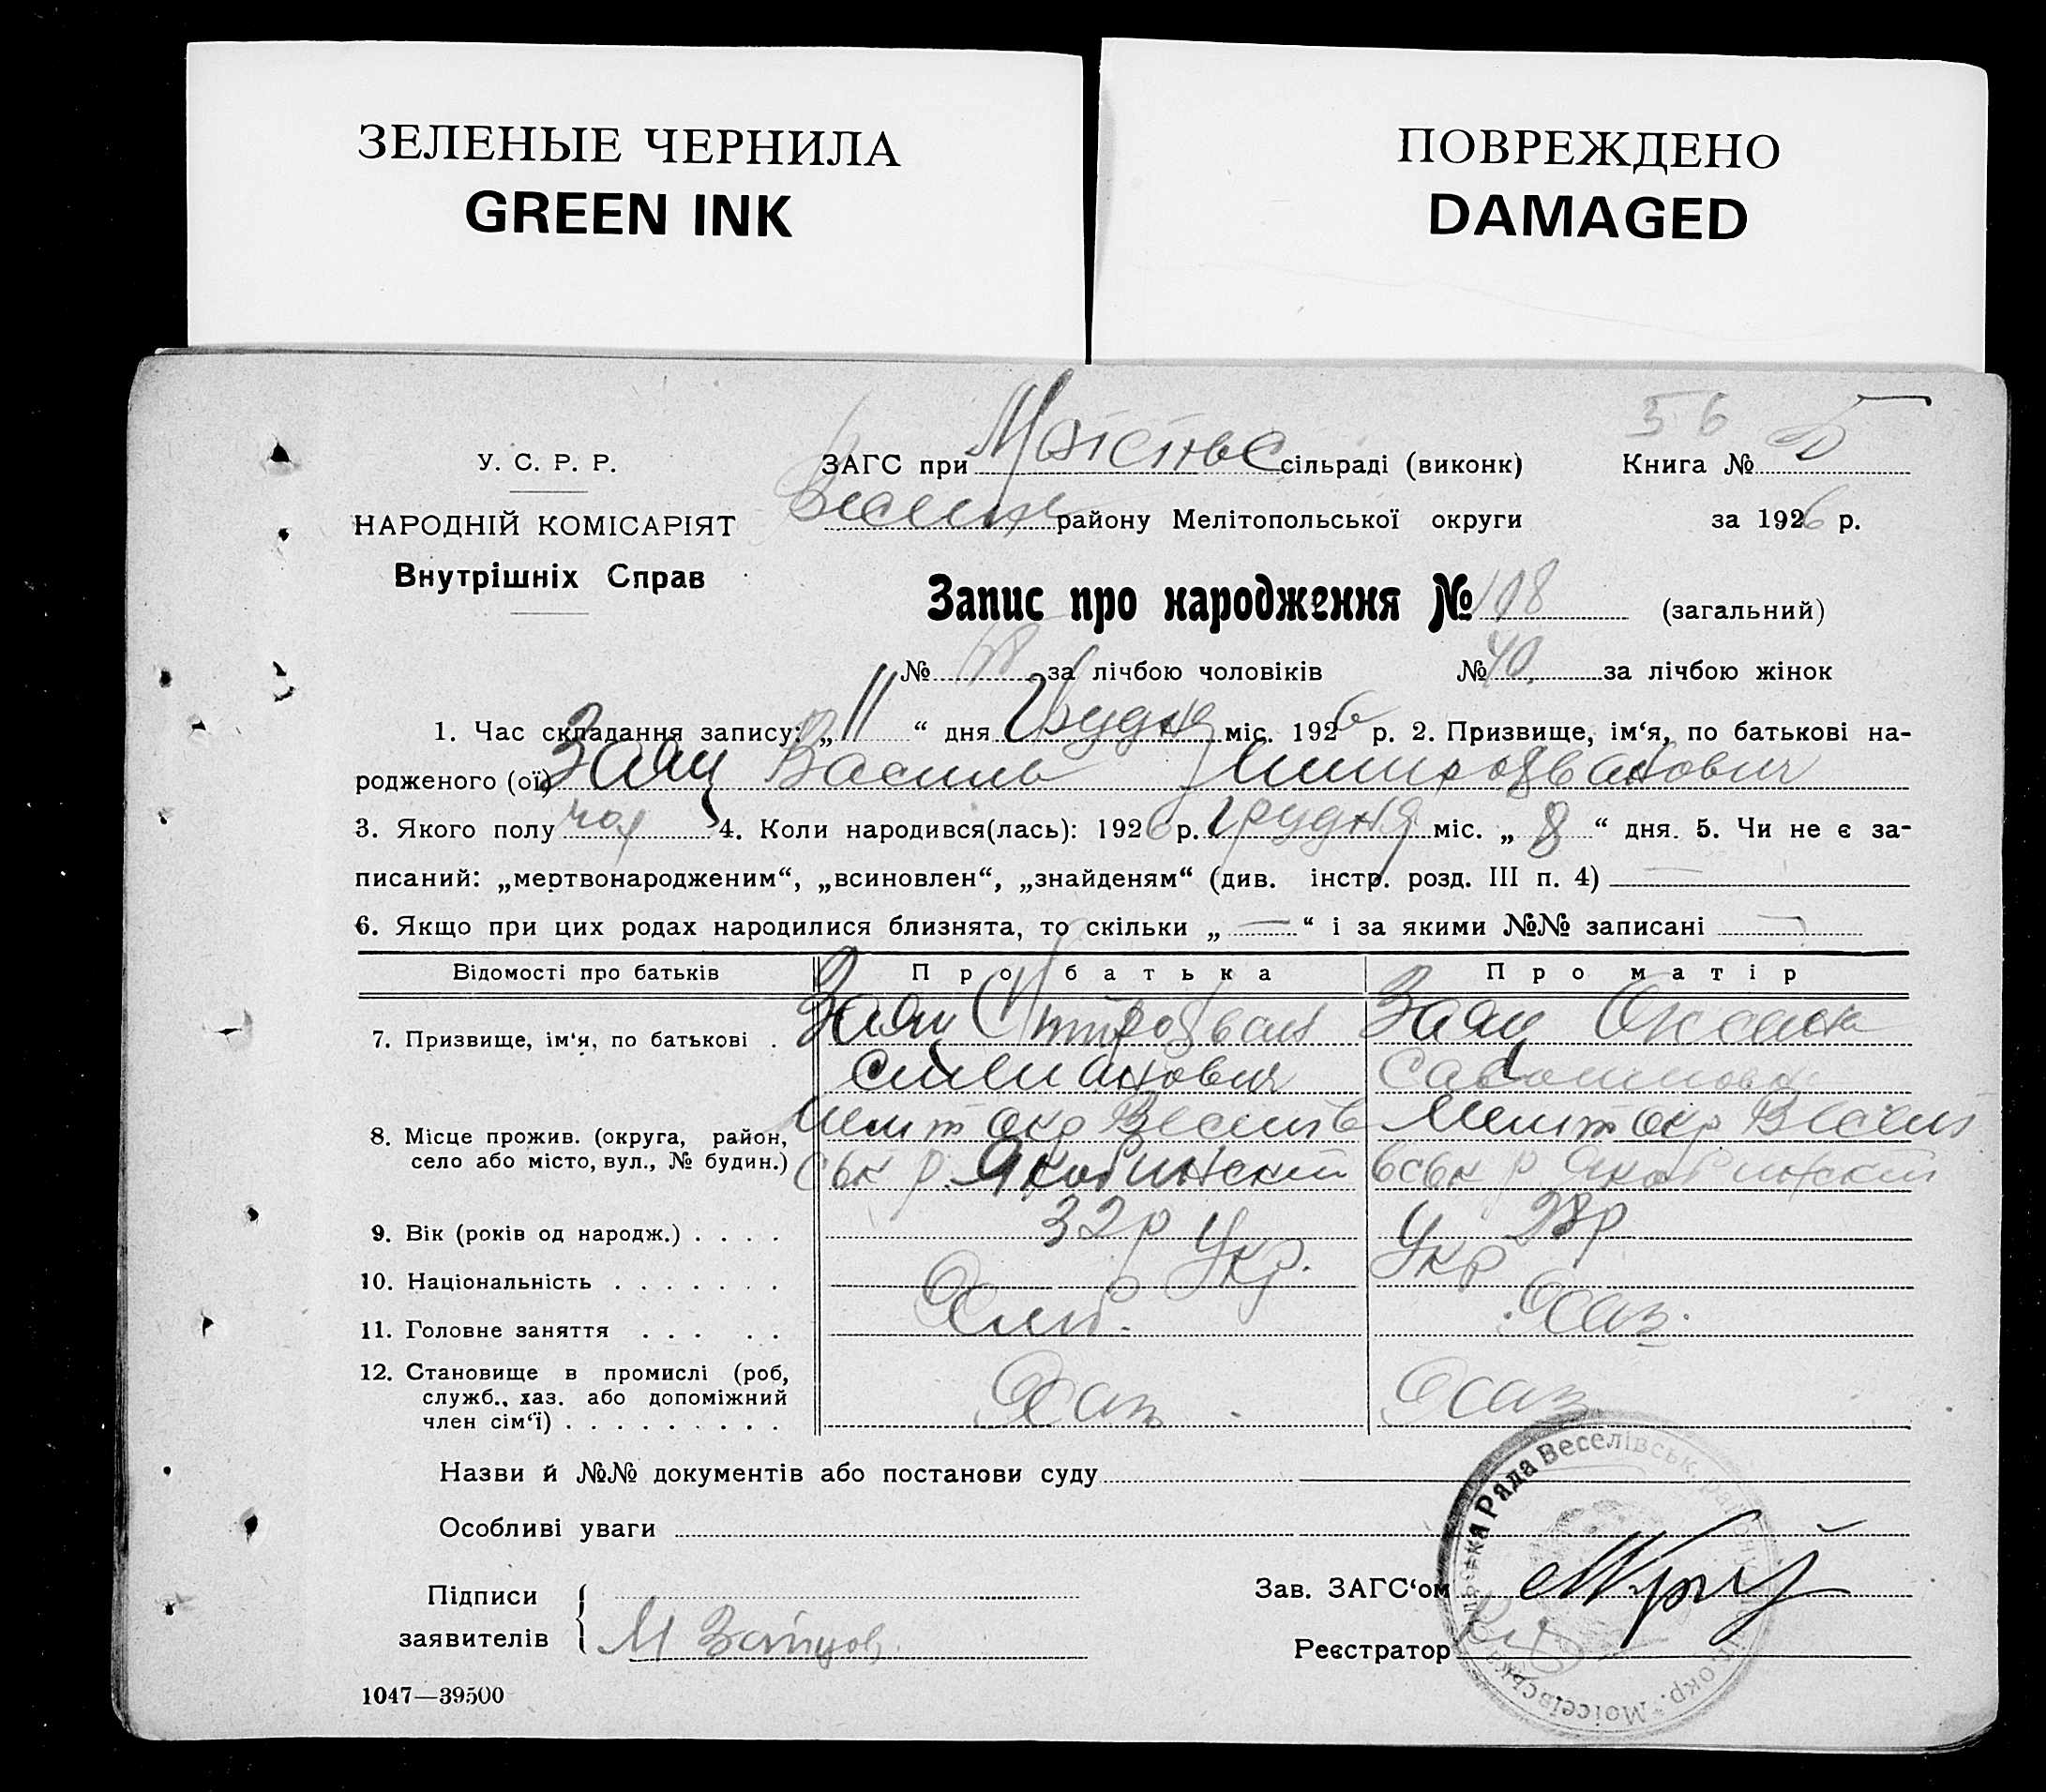 ЗЕЛЕНЫЕ ЧЕРНИЛА
GREEN INK
ПОВРЕЖДЕНО
DAMAGED
56
У. С. Р. Р.
ЗАГС при сільраді (виконк) Книга № Б
НАРОДНІЙ КОМІСАРІЯТ
району Мелітопольської округи за 1926 р.
Внутрішніх Справ
Запис про народження № (загальний)
№ за лічбою чоловіків № 40. за лічбою жінок
1. Час складання запису: „ 11 “ дня Грудня міс. 1926 р. 2. Призвище, ім‘я, по батькові на-
родженого (ої) Заяц Василь
3. Якого полу чол 4. Коли народився(лась): 1926 р. Грудня міс. „ 8 “ дня. 5. Чи не є за-
писаний: „мертвонародженим“, „всиновлен“, „знайденям“ (див. інстр. розд. III п. 4) —
6. Якщо при цих родах народилися близнята, то скільки „ — “ і за якими №№ записані —
Відомості про батьків Про батька Про матір
7. Призвище, ім‘я, по батькові . Заяц Заяц Оксана
8. Місце прожив. (округа, район, Мелит окр Веселів Мелит окр Веселі
село або місто, вул., № будин.) ськ р. вськ р
9. Вік (років од народж.) . . . . 32 р 28р
10. Національність . . . . . . . Укр. Укр
11. Головне заняття . . . . .
12. Становище в промислі (роб,
служб., хаз. або допоміжний
член сім‘ї) . . . . . . . . .
Назви й №№ документів або постанови суду
Особливі уваги
Підписи
заявителів
М Зайцов
Зав. ЗАГС‘ом
Реєстратор
Рада Веселівськ. окр. Моісеївська
1047—39500